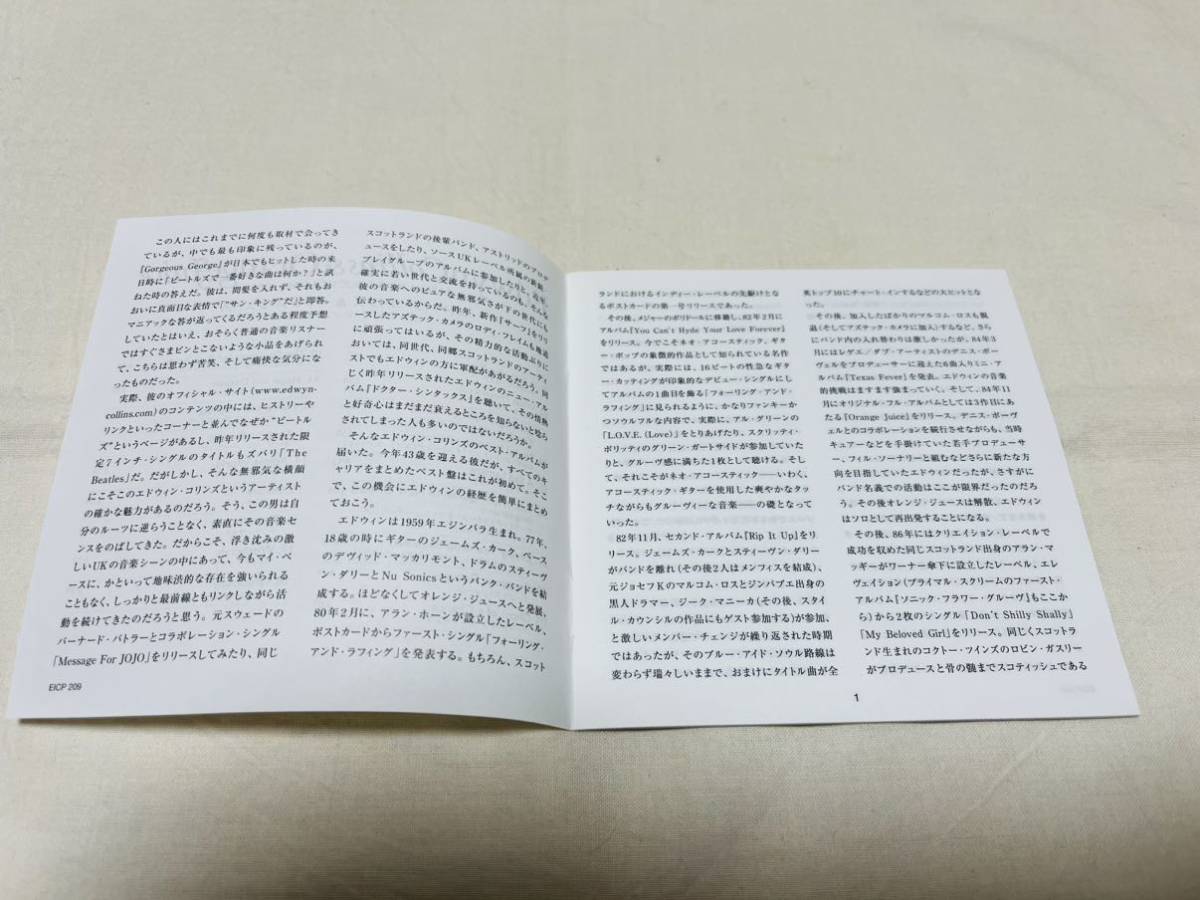 この人にはこれまでに何度も取材で会ってき
ているが、中でも最も印象に残っているのが、
『Gorgeous George』が日本でもヒットした時の来
日時に「ビートルズで一番好きな曲は何か？」と訊
ねた時の答えだ。彼は、間髪を入れず、それもお
おいに真面目な表情で「“サン・キング”だ」と即答。
マニアックな答が返ってくるだろうとある程度予想
していたとはいえ、おそらく普通の音楽リスナー
ではすぐさまピンとこないような小品をあげられ
て、こちらは思わず苦笑、そして痛快な気分にな
ったものだった。
実際、彼のオフィシャル・サイト(www.edwyn-
collins.com)のコンテンツの中には、ヒストリーや
リンクといったコーナーと並んでなぜか“ビートル
ズ”というページがあるし、昨年リリースされた限
定7インチ・シングルのタイトルもズバリ「The
Beatles」だ。だがしかし、そんな無邪気な横顔
にこそこのエドウィン・コリンズというアーティスト
の確かな魅力があるのだろう。そう、この男は自
分のルーツに逆らうことなく、素直にその音楽セ
ンスをのばしてきた。だからこそ、浮き沈みの激
しいUKの音楽シーンの中にあって、今もマイ・ペ
ースに、かといって地味渋的な存在を強いられる
こともなく、しっかりと最前線ともリンクしながら活
動を続けてきたのだろうと思う。元スウェードの
バーナード・バトラーとコラボレーション・シングル
「Message For JOJO」をリリースしてみたり、同じ
EICP 209
スコットランドの後輩バンド、アストリッドのプロデ
ュースをしたり、ソースUKレーベル所属の新鋭、
プレイグループのアルバムに参加したりと、近年、
確実に若い世代と交流を持っているのも、そんな
彼の音楽へのピュアな無邪気さが下の世代にも
伝わっているからだ。昨年、新作『サーフ』をリリ
ースしたアズテック・カメラのロディ・フレイムも地道
に頑張ってはいるが、その精力的な活動ぶりに
おいては、同世代、同郷スコットランドのアーティ
ストでもエドウィンの方に軍配があがるだろう。同
じく昨年リリースされたエドウィンのニュー・アル
バム『ドクター・シンタックス』を聴いて、その情熱
と好奇心はまだまだ衰えるところを知らないと唸ら
されてしまった人も多いのではないだろうか。
そんなエドウィン・コリンズのベスト・アルバムが
届いた。今年43歳を迎える彼だが、すべてのキ
ャリアをまとめたベスト盤はこれが初めて。そこ
で、この機会にエドウィンの経歴を簡単にまとめ
ておこう。
エドウィンは1959年エジンバラ生まれ。77年、
18歳の時にギターのジェームズ・カーク、ベース
のデヴィッド・マッカリモント、ドラムのスティーヴ
ン・ダリーとNu Sonicsというパンク・バンドを結
成する。ほどなくしてオレンジ・ジュースへと発展、
80年2月に、アラン・ホーンが設立したレーベル、
ポストカードからファースト・シングル「フォーリング・
アンド・ラフィング」を発表する。もちろん、スコット
ランドにおけるインディー・レーベルの先駆けとな
るポストカードの第一号リリースであった。
その後、メジャーのポリドールに移籍し、82年2月に
アルバム『You Can't Hyde Your Love Forever』
をリリース。今でこそネオ・アコースティック、ギタ
ー・ポップの象徴的作品として知られている名作
ではあるが、実際には、16ビートの性急なギタ
ー・カッティングが印象的なデビュー・シングルにし
てアルバムの1曲目を飾る「フォーリング・アンド・
ラフィング」に見られるように、かなりファンキーか
つソウルフルな内容で、実際に、アル・グリーンの
「L.O.V.E. (Love)」をとりあげたり、スクリッティ・
ポリッティのグリーン・ガートサイドが参加していた
りと、グルーヴ感に満ちた1枚として聴ける。そし
て、それこそがネオ・アコースティック──いわく、
アコースティック・ギターを使用した爽やかなタッ
チながらもグルーヴィーな音楽──の礎となって
いった。
82年11月、セカンド・アルバム『Rip It Up』をリ
リース。ジェームズ・カークとスティーヴン・ダリー
がバンドを離れ（その後2人はメンフィスを結成）、
元ジョセフKのマルコム・ロスとジンバブエ出身の
黒人ドラマー、ジーク・マニーカ（その後、スタイ
ル・カウンシルの作品にもゲスト参加する）が参加、
と激しいメンバー・チェンジが繰り返された時期
ではあったが、そのブルー・アイド・ソウル路線は
変わらず瑞々しいままで、おまけにタイトル曲が全
英トップ10にチャート・インするなどの大ヒットとな
った。
その後、加入したばかりのマルコム・ロスも脱
退（そしてアズテック・カメラに加入）するなど、さら
にバンド内の入れ替わりは激しかったが、84年3
月にはレゲエ／ダブ・アーティストのデニス・ボー
ヴェルをプロデューサーに迎えた6曲入りミニ・ア
ルバム『Texas Fever』を発表。エドウィンの音楽
的挑戦はますます強まっていく。そして、84年11
月にオリジナル・フル・アルバムとしては3作目にあ
たる『Orange Juice』をリリース。デニス・ボーヴ
ェルとのコラボレーションを続行させながらも、当時
キュアーなどを手掛けていた若手プロデューサ
ー、フィル・ソーナリーと組むなどさらに新たな方
向を目指していたエドウィンだったが、さすがに
バンド名義での活動はここが限界だったのだろ
う。その後オレンジ・ジュースは解散、エドウィン
はソロとして再出発することになる。
その後、86年にはクリエイション・レーベルで
成功を収めた同じスコットランド出身のアラン・マ
ッギーがワーナー傘下に設立したレーベル、エレ
ヴェイション（プライマル・スクリームのファースト・
アルバム『ソニック・フラワー・グルーヴ』もここか
ら）から2枚のシングル「Don't Shilly Shally」
「My Beloved Girl」をリリース。同じくスコットラ
ンド生まれのコクトー・ツインズのロビン・ガスリー
がプロデュースと骨の髄までスコティッシュである
1